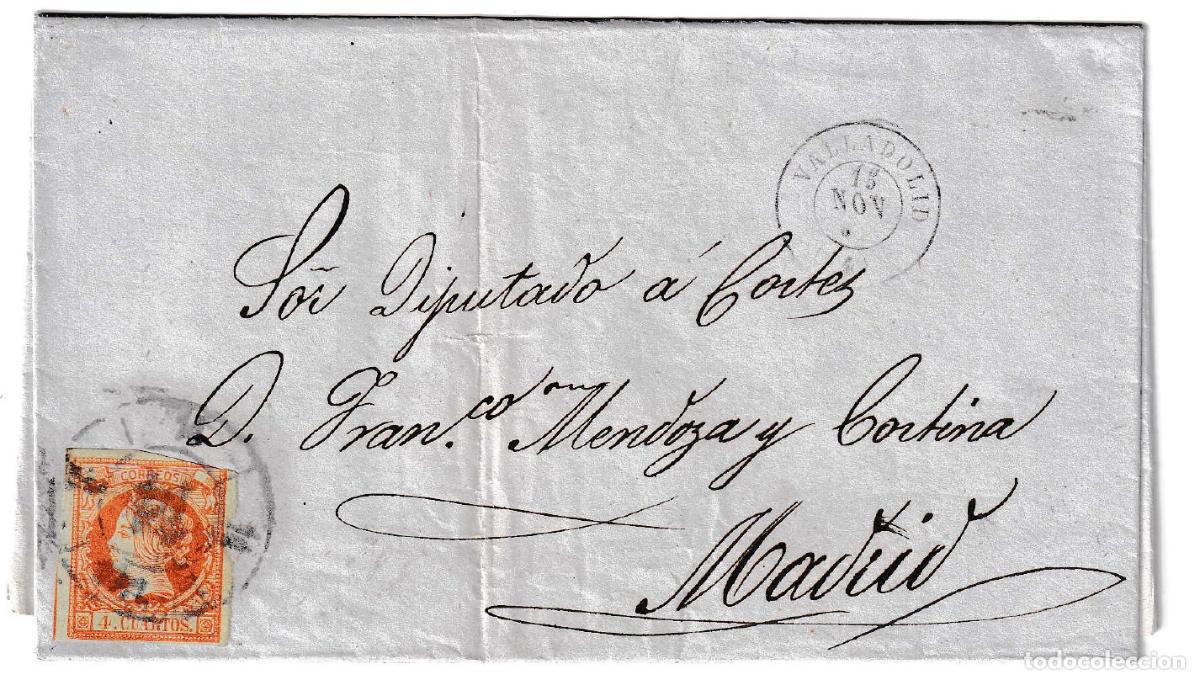 VALLADOLID
15
NOV
Sor̃ Diputado á Cortes
D. Fran.co Mendoza y Cortina
Madrid
CORREOS
4. CUARTOS.
todocoleccion